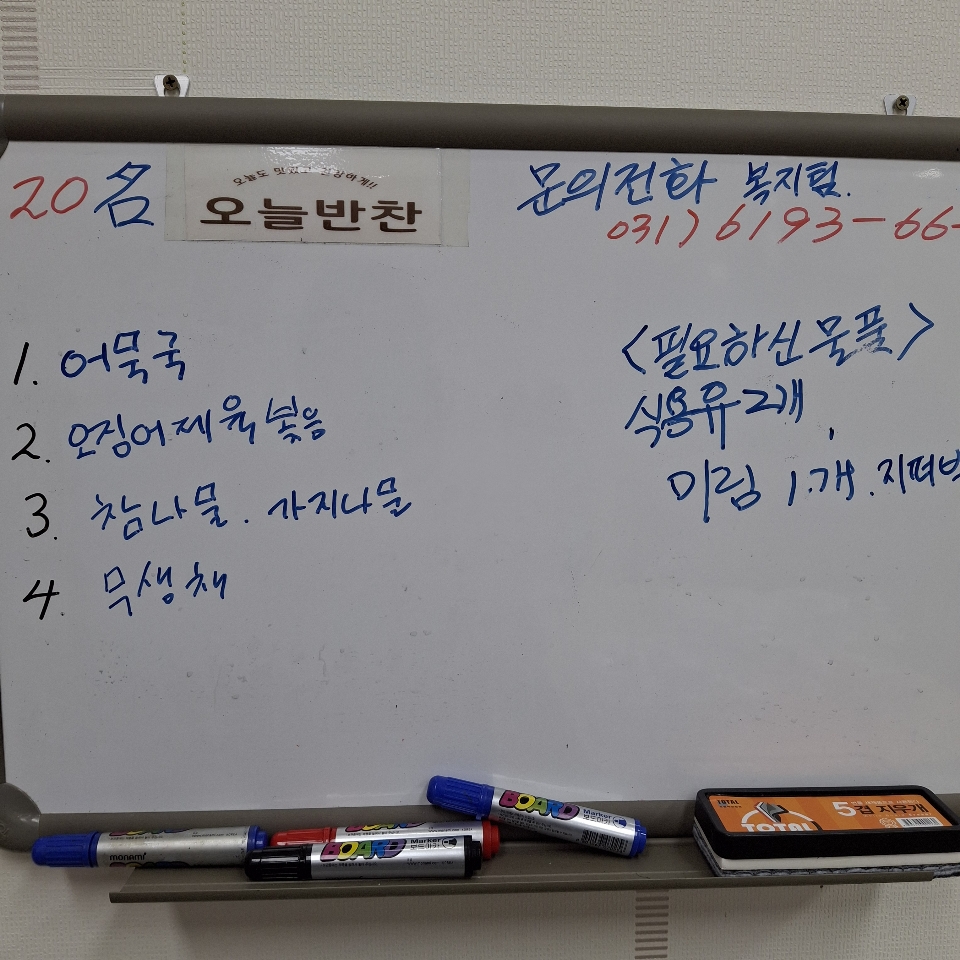 20名
오늘도 맛있고 건강하게!!
오늘반찬
문의전화 복지팀.
031) 6193-66-
1. 어묵국
2. 오징어제육볶음
3. 참나물. 가지나물
4. 무생채
<필요하신 물품>
식용유 2개,
미림 1.개. 지퍼백
BOARD Marker 보드마카
monami
BOARD
BOARD Marker 보드마카
TOTAL
TOTAL
5겹 지우개